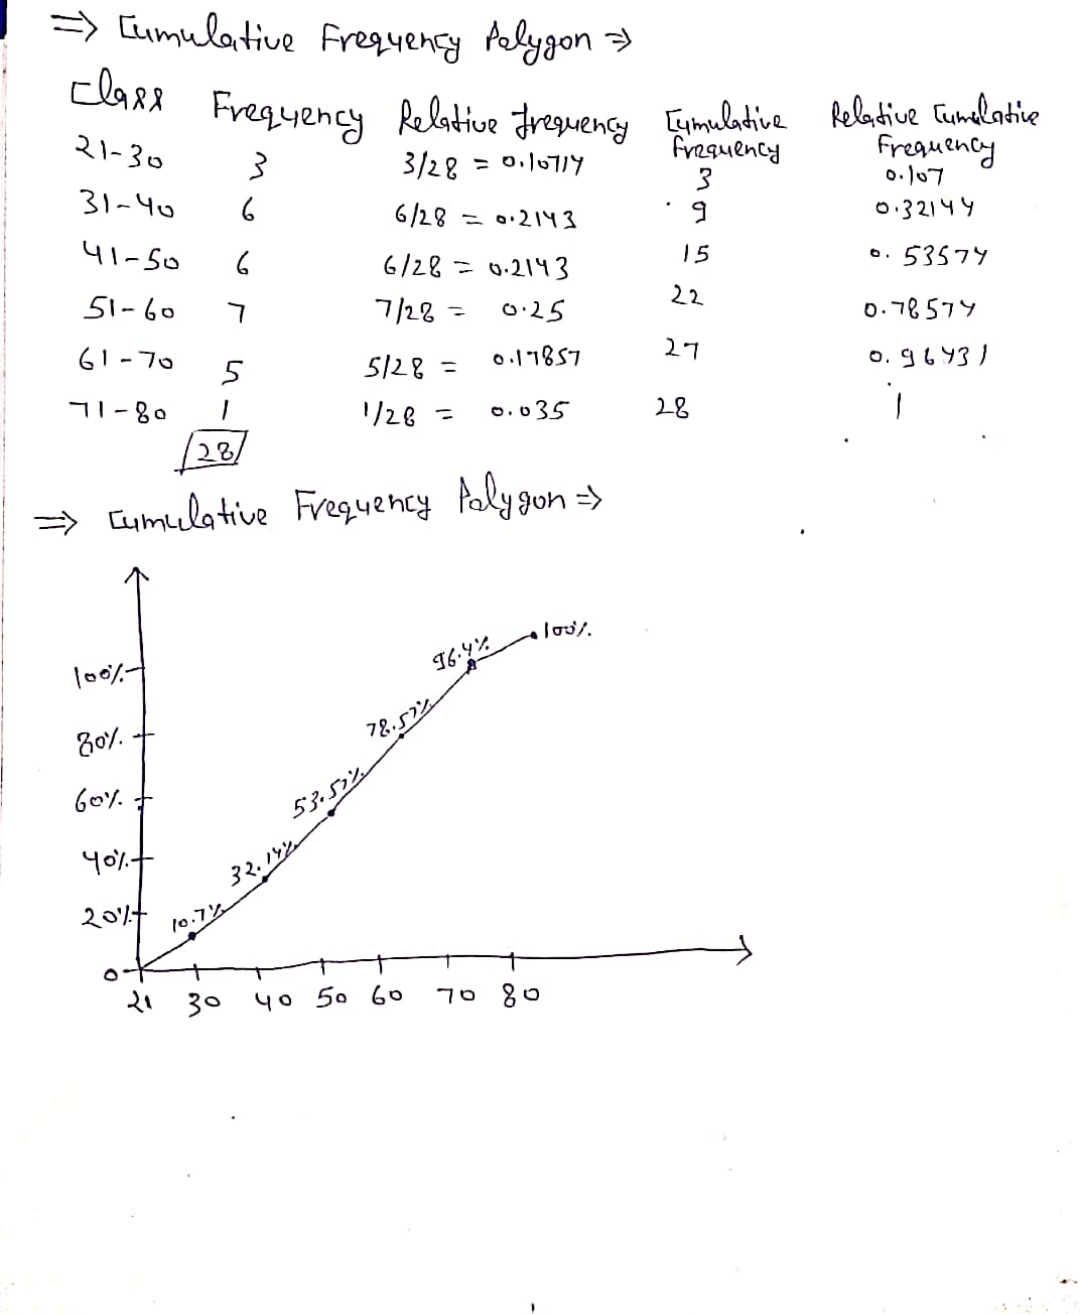 ⇒ Cumulative Frequency Polygon ⇒
Class Frequency Relative frequency Cumulative Frequency Relative Cumulative Frequency
21-30 3 3/28 = 0.10714 3 0.107
31-40 6 6/28 = 0.2143 9 0.32144
41-50 6 6/28 = 0.2143 15 0.53574
51-60 7 7/28 = 0.25 22 0.78574
61-70 5 5/28 = 0.17857 27 0.96431
71-80 1 1/28 = 0.035 28 1
28
⇒ Cumulative Frequency Polygon ⇒
100%
96.4%
100%
78.57%
80%
53.57%
60%
32.14%
40%
10.7%
20%
0
21 30 40 50 60 70 80